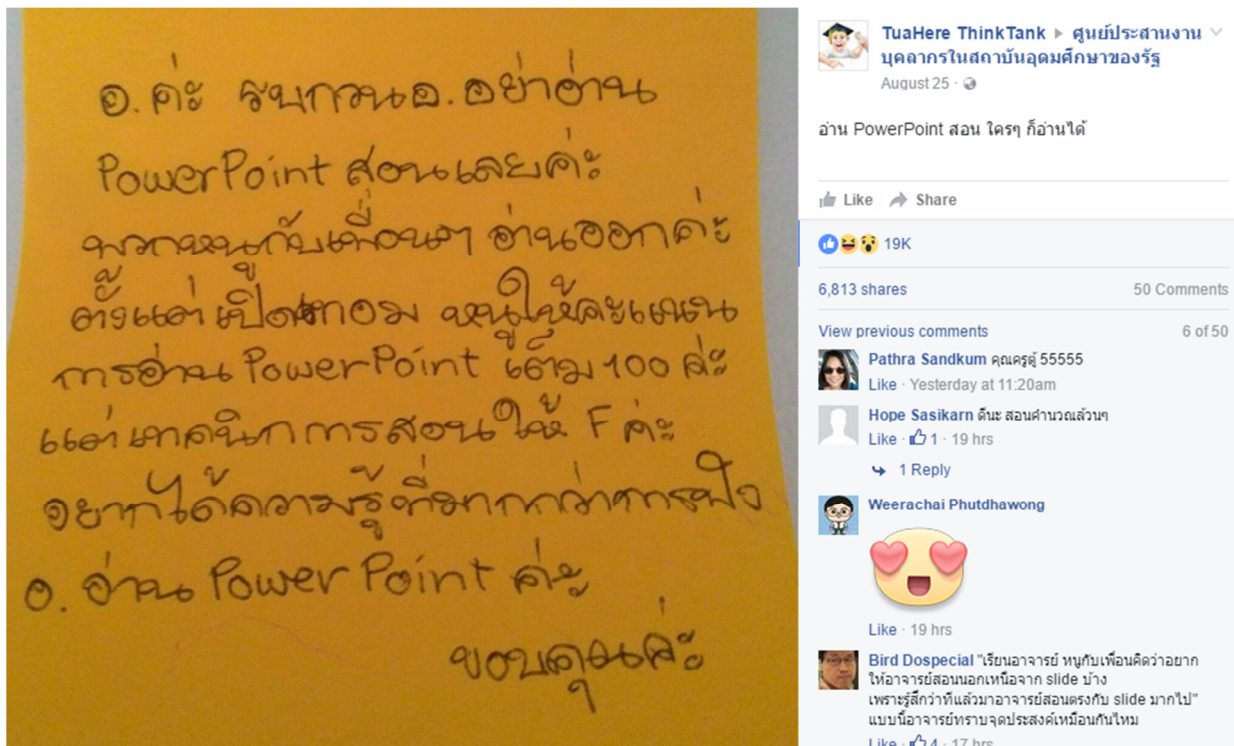 อ. ค่ะ รบกวนอ. อย่าอ่าน
PowerPoint สอนเลยค่ะ
พวกหนูกับเพื่อนๆ อ่านออกค่ะ
ตั้งแต่เปิดเทอม หนูให้คะแนน
การอ่าน PowerPoint เต็ม 100 ค่ะ
แต่เทคนิคการสอนให้ F ค่ะ
อยากได้ความรู้ที่มากกว่าการฟัง
อ. อ่าน PowerPoint ค่ะ
ขอบคุณค่ะ
TuaHere ThinkTank ▸ ศูนย์ประสานงาน
บุคลากรในสถาบันอุดมศึกษาของรัฐ
August 25 ·
อ่าน PowerPoint สอน ใครๆ ก็อ่านได้
Like Share
19K
6,813 shares 50 Comments
View previous comments 6 of 50
Pathra Sandkum คุณครูตู้ 55555
Like · Yesterday at 11:20am
Hope Sasikarn ดีนะ สอนคำนวณล้วนๆ
Like · 1 · 19 hrs
1 Reply
Weerachai Phutdhawong
Like · 19 hrs
Bird Dospecial "เรียนอาจารย์ หนูกับเพื่อนคิดว่าอยาก
ให้อาจารย์สอนนอกเหนือจาก slide บ้าง
เพราะรู้สึกว่าที่แล้วมาอาจารย์สอนตรงกับ slide มากไป"
แบบนี้อาจารย์ทราบจุดประสงค์เหมือนกันไหม
Like · 4 · 17 hrs